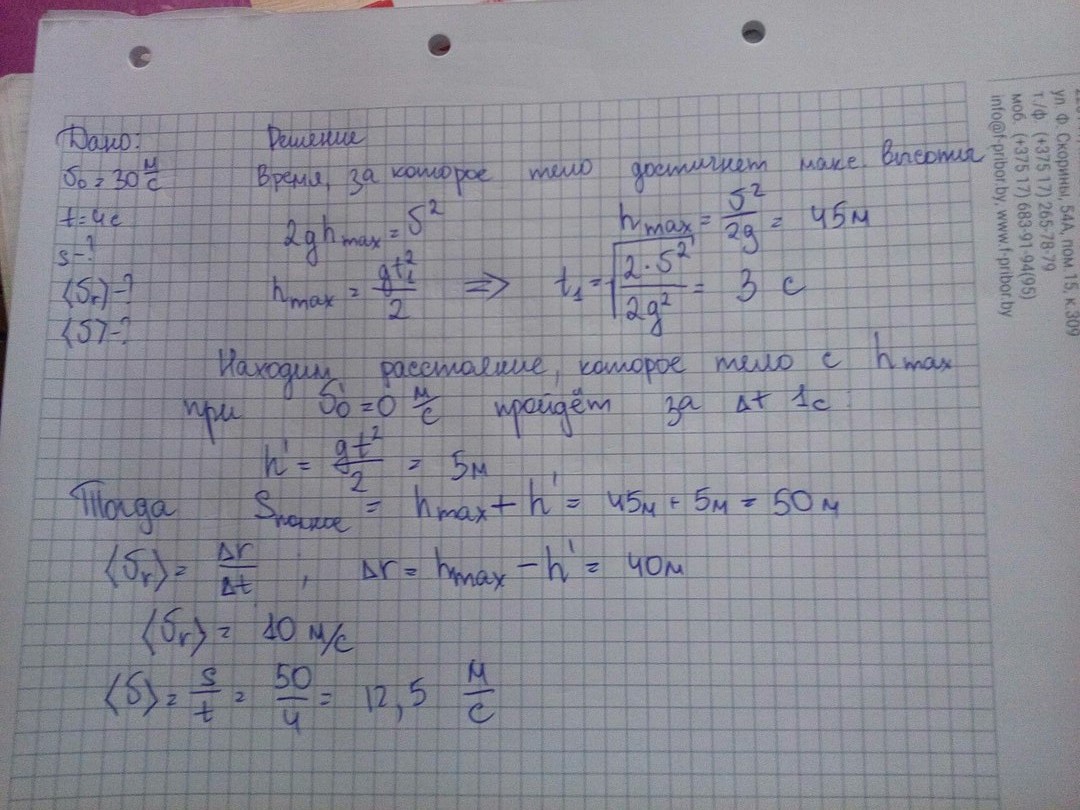 Дано:
υ₀ = 30 м/с
t = 4с
s - ?
⟨υᵣ⟩ - ?
⟨υ⟩ - ?
Решение
Время, за которое тело достигнет макс высоты
2ghmax = υ²
hmax = υ²/2g = 45м
hmax = gt₁²/2 ⇒ t₁ = √(2·υ²/2g²) = 3 с
Находим расстояние, которое тело с hmax
при υ₀' = 0 м/с пройдёт за Δt 1с:
h' = gt²/2 = 5м
Тогда Sполное = hmax + h' = 45м + 5м = 50м
⟨υᵣ⟩ = Δr/Δt , Δr = hmax - h' = 40м
⟨υᵣ⟩ = 10 м/с
⟨υ⟩ = s/t = 50/4 = 12,5 м/с
ул. Ф. Скорины, 54А, пом.15, к.309
т/ф. (+375 17) 265-78-79
моб. (+375 17) 683-91-94(95)
info@f-pribor.by, www.f-pribor.by